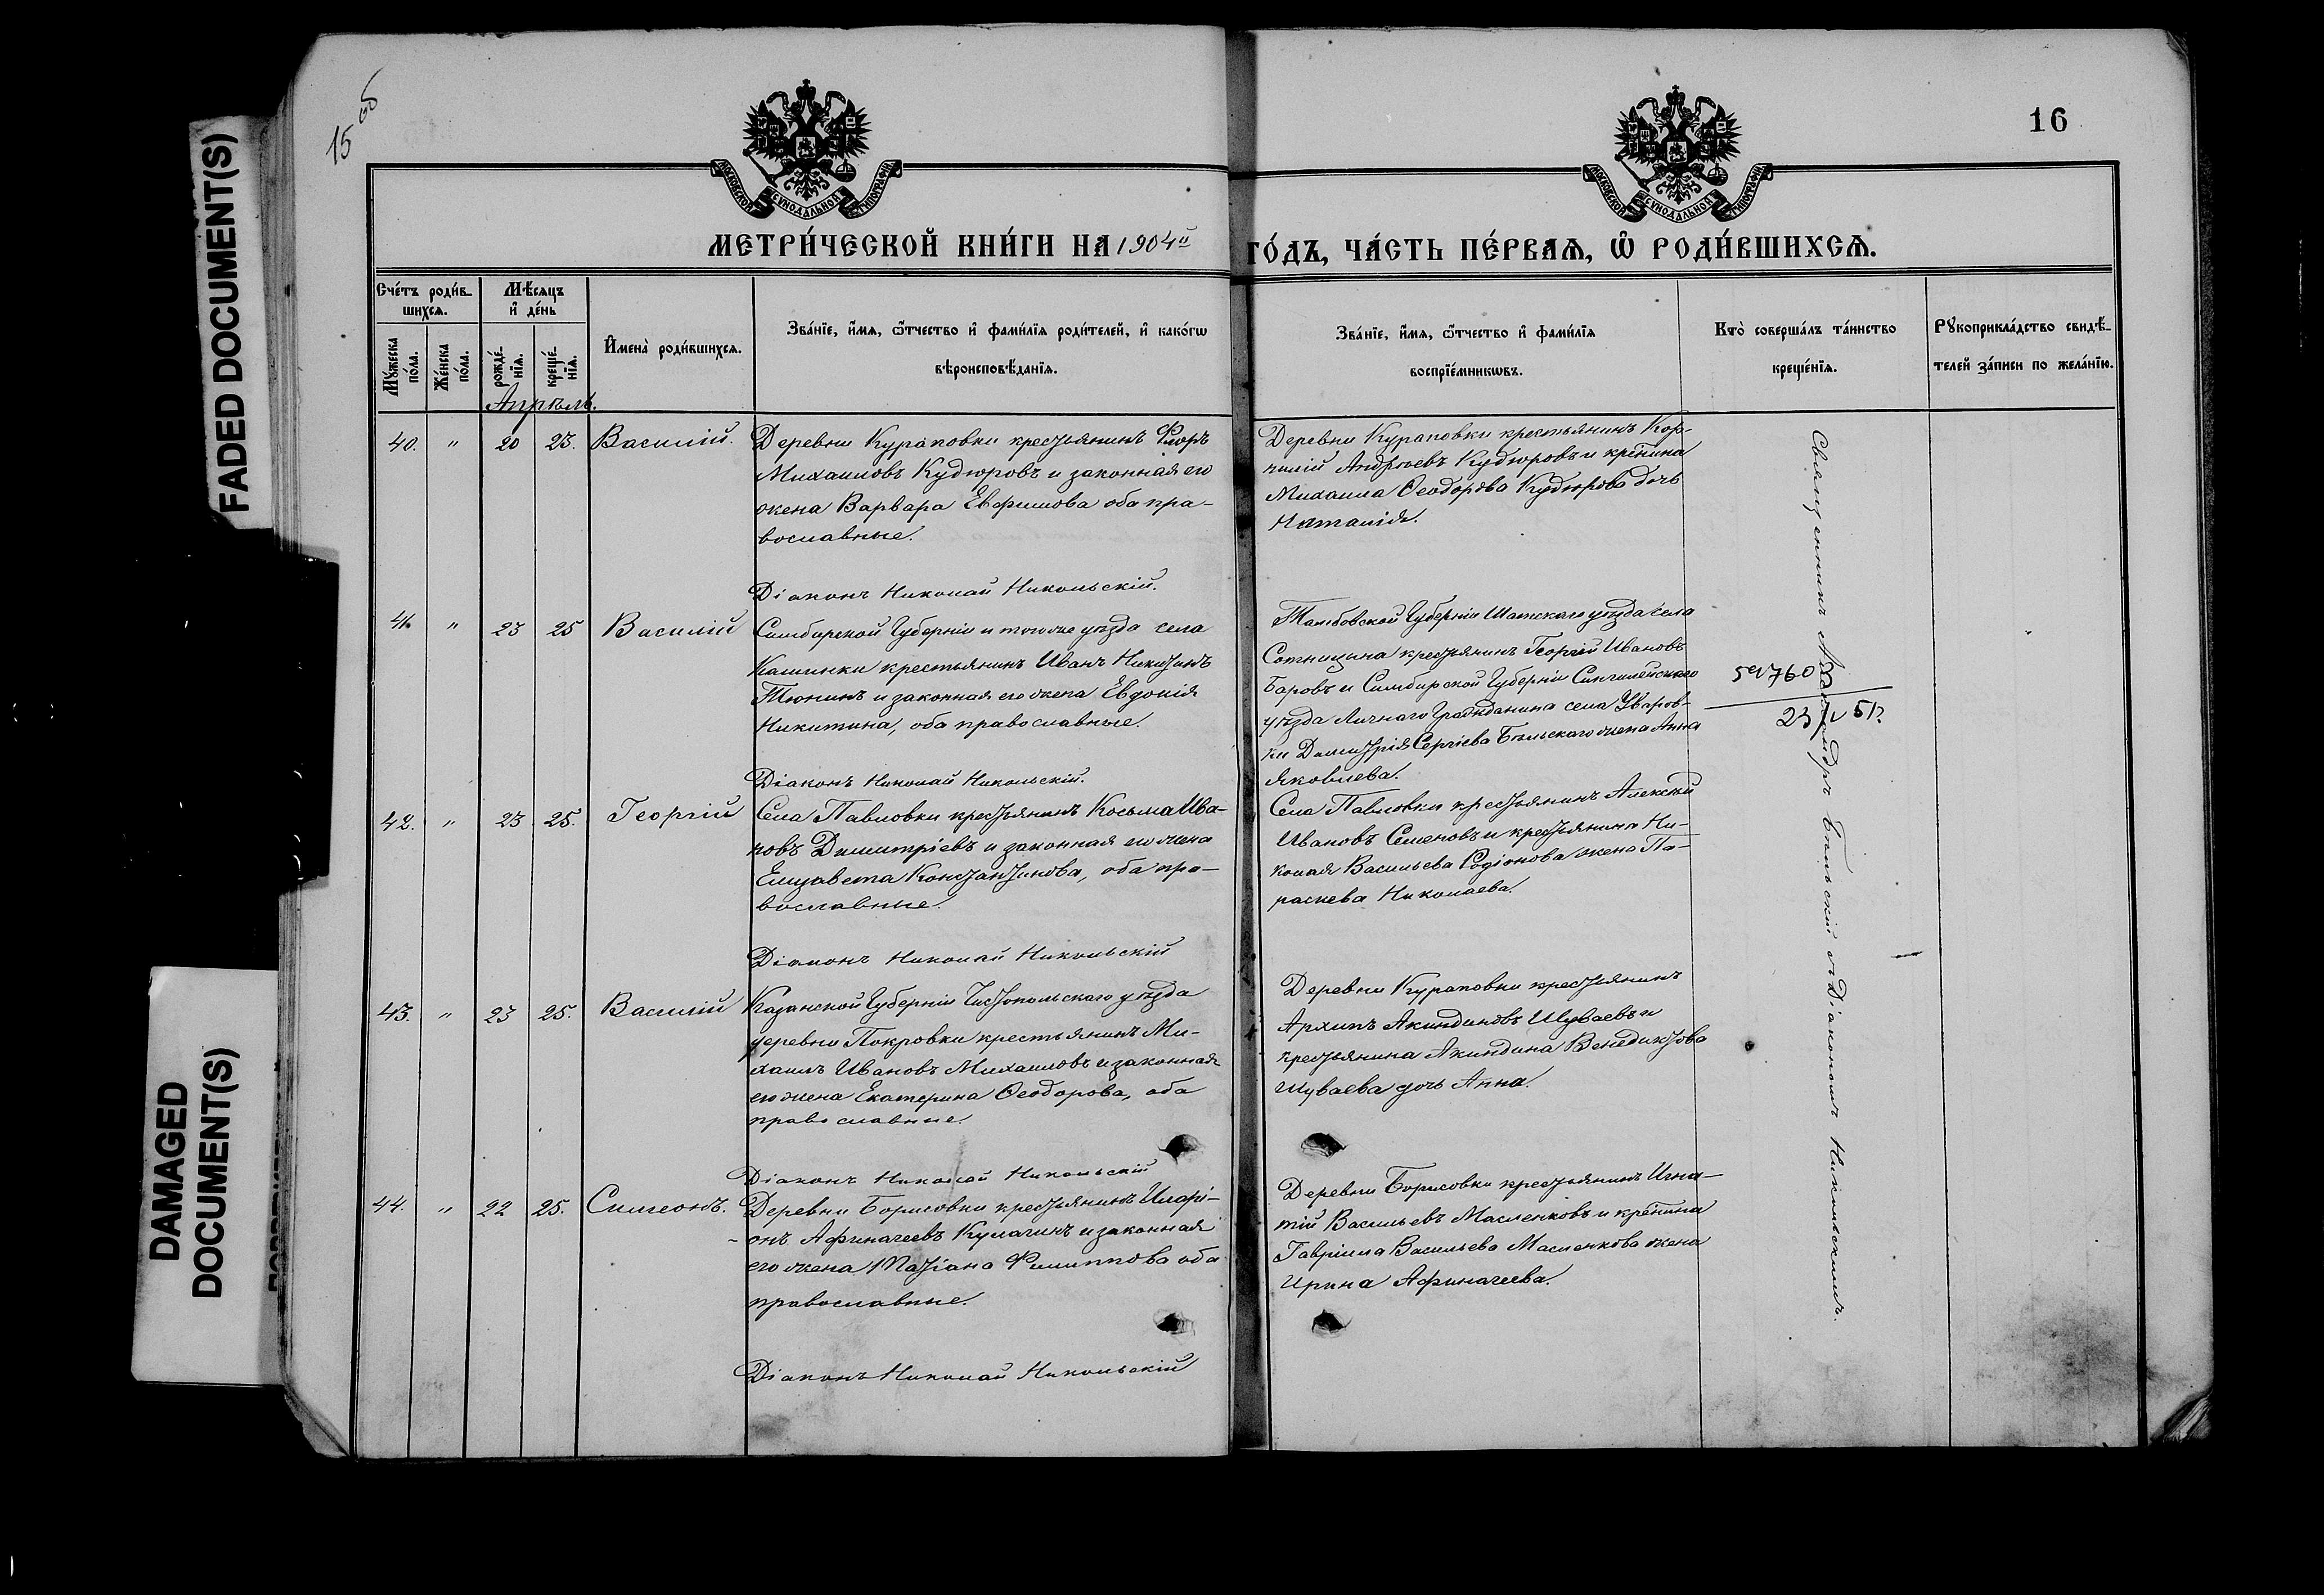 FADED DOCUMENT(S)
DAMAGED
DOCUMENT(S)
15 об
16
МОСКОВСКОЙ СУНОДАЛЬНОЙ ТИПОГРАФІИ
МОСКОВСКОЙ СУНОДАЛЬНОЙ ТИПОГРАФІИ
МЕТРИ́ЧЕСКОЙ КНИ́ГИ НА 1904й ГО́ДЪ, ЧА́СТЬ ПЕ́РВАѦ, Ѿ РОДИ́ВШИХСѦ.
Сче́тъ роди́в-
шихсѧ.
Мꙋ́жеска
по́ла.
Же́нска
по́ла.
Мѣ́сѧцъ
и҆ де́нь
рожде́-
нїѧ.
креще́-
нїѧ.
И҆мена̀ роди́вшихсѧ.
Зва́нїе, и҆́мѧ, ѻ҆́тчество и҆ фами́лїѧ роди́телей, и҆ како́гѡ
вѣроисповѣ́данїѧ.
Зва́нїе, и҆́мѧ, ѻ҆́тчество и҆ фами́лїѧ
воспрїе́мникѡвъ.
Кто̀ соверша́лъ та́инство
креще́нїѧ.
Рꙋкоприкла́дство свидѣ́-
телей за́писи по жела́нїю.
Апрѣль.
40. " 20 23. Василій.
Деревни Кураповки крестьянинъ Флоръ
Михаиловъ Кудюровъ и законная его
жена Варвара Евфимова оба пра-
вославные.
Діаконъ Николай Никольскій.
Деревни Кураповки крестьянинъ Кор-
нилій Андреевъ Кудюровъ и крѣнина
Михаила Ѳеодорова Кудюрова дочь
Наталія.
41. " 23 25 Василій
Симбирской Губерніи и того же уѣзда села
Кашинки крестьянинъ Иванъ Никитинъ
Тюнинъ и законная его жена Евдокія
Никитина, оба православные.
Діаконъ Николай Никольскій.
Тамбовской Губерніи Шатскаго уѣзда села
Сотницына крестьянинъ Георгій Ивановъ
Баровъ и Симбирской Губерніи Сингилейскаго
уѣзда Личнаго Гражданина села Уваров-
ки Димитрія Сергіева Бѣльскаго жена Анна
Яковлева.
42. " 23 25. Георгій
Села Павловки крестьянинъ Косьма Ива-
новъ Димитріевъ и законная его жена
Елизавета Константинова, оба пра-
вославные.
Діаконъ Николай Никольскій
Села Павловки крестьянинъ Алексѣй
Ивановъ Семеновъ и крестьянина Ни-
колая Васильева Родіонова жена Па-
раскева Николаева.
43. " 23 25. Василій
Казанской Губерніи Чистопольскаго уѣзда
деревни Покровки крестьянинъ Ми-
хаилъ Ивановъ Михаиловъ и законная
его жена Екатерина Ѳеодорова, оба
православные.
Діаконъ Николай Никольскій
Деревни Кураповки крестьянинъ
Архипъ Акиндиновъ Шуваевъ и
крестьянина Акиндина Венедиктова
Шуваева дочь Анна.
44. " 22 25. Симеонъ.
Деревни Борисовки крестьянинъ Иларі-
онъ Афиначеевъ Кулагинъ и законная
его жена Татіана Филиппова оба
православные.
Діаконъ Николай Никольскій
Деревни Борисовки крестьянинъ Игна-
тій Васильевъ Масленковъ и крѣнина
Гавріила Васильева Масленкова жена
Ирина Афиначеева.
Священникъ Александръ Бѣльскій съ Діакономъ Никольскимъ.